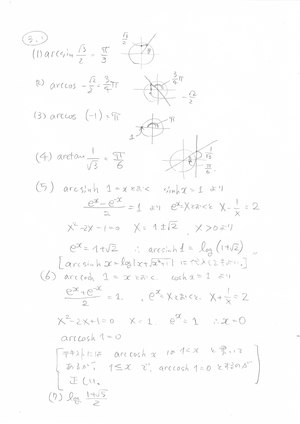 3.1
(1) arcsin √3/2 = π/3
√3/2
(2) arccos -√2/2 = 3/4 π
3/4 π
-√2/2
(3) arccos (-1) = π
π
(4) arctan 1/√3 = π/6
(5) arcsinh 1 = x とおくと sinh x = 1 より
(e^x - e^-x)/2 = 1 より e^x = X とおくと X - 1/X = 2
X² - 2X - 1 = 0 X = 1 ± √2 X > 0 より
e^x = 1 + √2 ∴ arcsinh 1 = log (1 + √2)
(6) arccosh 1 = x とおくと cosh x = 1 より
(e^x + e^-x)/2 = 1. e^x = X とおくと X + 1/X = 2
X² - 2X + 1 = 0 X = 1. e^x = 1 ∴ x = 0
arccosh 1 = 0
arccosh x の 1 < x と
1 ≤ x で arccosh 1 = 0
正しい.
(7) log